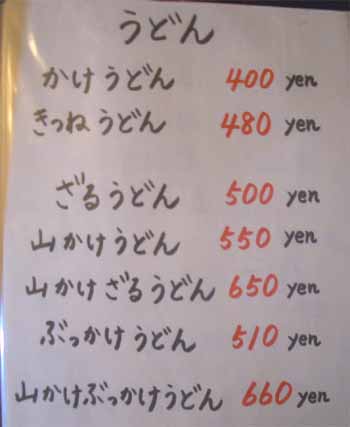 うどん
かけうどん 400 yen
きつねうどん 480 yen
ざるうどん 500 yen
山かけうどん 550 yen
山かけざるうどん 650 yen
ぶっかけうどん 510 yen
山かけぶっかけうどん 660 yen